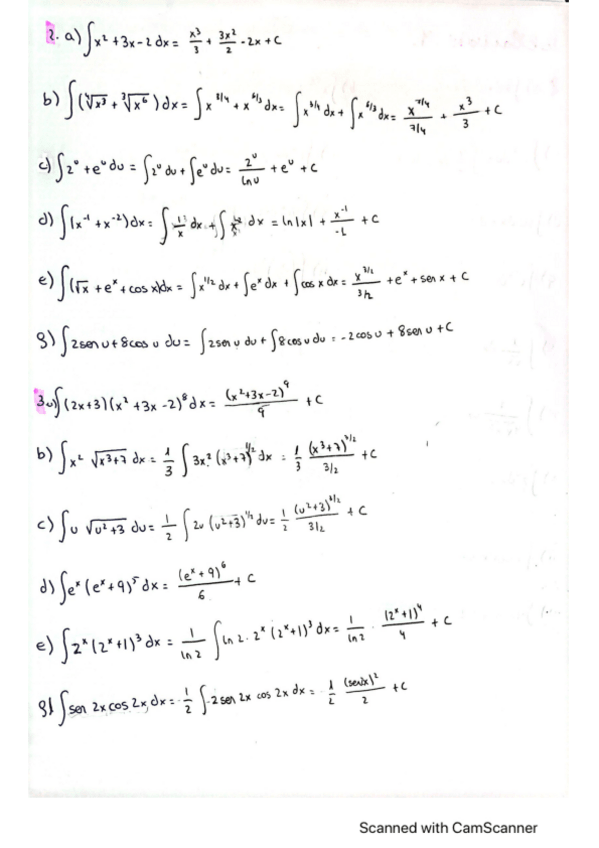 2. a) ∫x² + 3x - 2 dx = x³/3 + 3x²/2 - 2x + C
b) ∫(∜x³ + ∛x⁶) dx = ∫x^(3/4) + x^(6/3) dx = ∫x^(3/4) dx + ∫x^(6/3) dx = x^(7/4)/(7/4) + x³/3 + C
c) ∫2ᵘ + eᵘ du = ∫2ᵘ du + ∫eᵘ du = 2ᵘ/ln u + eᵘ + C
d) ∫(x⁻¹ + x⁻²) dx = ∫1/x dx + ∫x⁻² dx = ln|x| + x⁻¹/-1 + C
e) ∫(√x + eˣ + cos x) dx = ∫x^(1/2) dx + ∫eˣ dx + ∫cos x dx = x^(3/2)/(3/2) + eˣ + sen x + C
g) ∫2sen u + 8cos u du = ∫2sen u du + ∫8cos u du = -2cos u + 8sen u + C
3. a) ∫(2x+3)(x² + 3x - 2)⁸ dx = (x²+3x-2)⁹/9 + C
b) ∫x² √(x³+7) dx = 1/3 ∫3x² (x³+7)^(1/2) dx = 1/3 (x³+7)^(3/2)/(3/2) + C
c) ∫u √(u²+3) du = 1/2 ∫2u (u²+3)^(1/2) du = 1/2 (u²+3)^(3/2)/(3/2) + C
d) ∫eˣ (eˣ + 9)⁵ dx = (eˣ + 9)⁶/6 + C
e) ∫2ˣ (2ˣ+1)³ dx = 1/ln 2 ∫ln 2 · 2ˣ (2ˣ+1)³ dx = 1/ln 2 · (2ˣ+1)⁴/4 + C
g) ∫sen 2x cos 2x dx = -1/2 ∫-2sen 2x cos 2x dx = 1/2 (sen2x)²/2 + C
Scanned with CamScanner